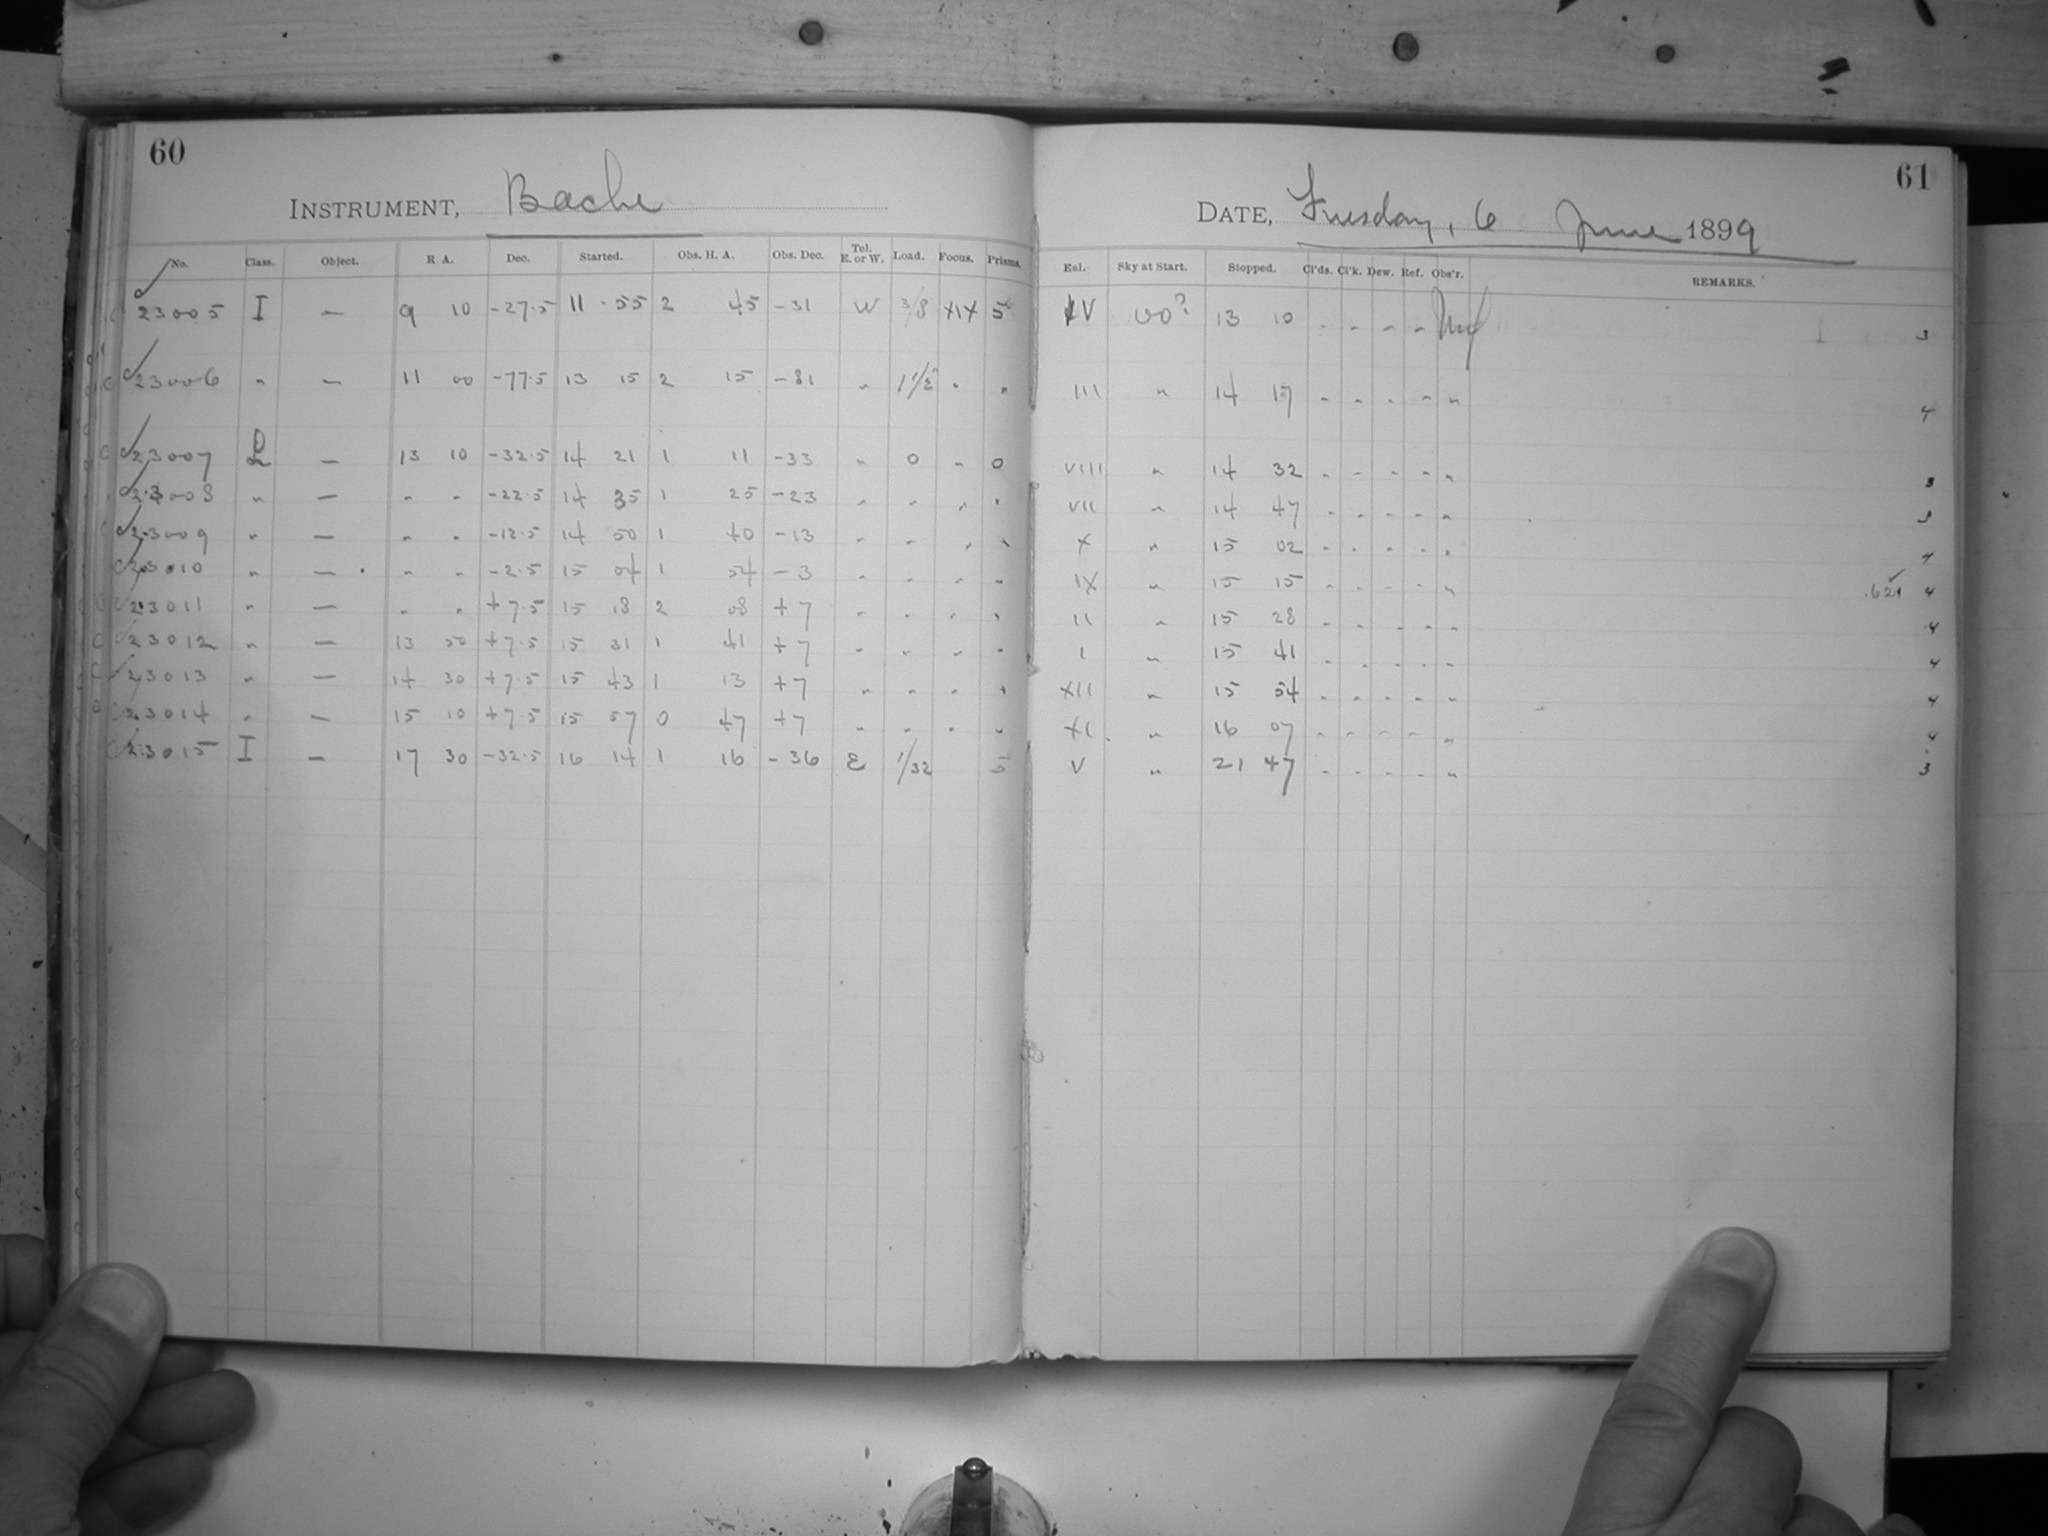 60
INSTRUMENT, Bache
No. Class. Object. R A. Dec. Started. Obs. H. A. Obs. Dec. Tel. E. or W. Load. Focus. Prisms.
23005 I — 9 10 -27.5 11 55 2 45 -31 W 3/8 XIX 5
23006 " — 11 00 -77.5 13 15 2 15 -81 " 1 1/2 " "
23007 — 13 10 -32.5 14 21 1 11 -33 " 0 " 0
23008 " — " " -22.5 14 35 1 25 -23 " " " "
23009 " — " " -12.5 14 50 1 40 -13 " " " "
23010 " — " " -2.5 15 04 1 54 -3 " " " "
23011 " — " " +7.5 15 18 2 08 +7 " " " "
23012 " — 13 50 +7.5 15 31 1 41 +7 " " " "
23013 " — 14 30 +7.5 15 43 1 13 +7 " " " "
23014 " — 15 10 +7.5 15 57 0 47 +7 " " " "
23015 I — 17 30 -32.5 16 14 1 16 -36 E 1/32 5
61
DATE, Tuesday, 6 June 1899
Enl. Sky at Start. Stopped. Cl'ds. Cl'k. Dew. Ref. Obs'r. REMARKS.
IV vo? 13 10 - - - - 3
III " 14 17 - - - - " 4
VIII " 14 32 - - - - " 3
VII " 14 47 - - - - " 3
X " 15 02 - - - - " 4
IX " 15 15 - - - - " 4
II " 15 28 - - - - " 4
I " 15 41 - - - - " 4
XII " 15 54 - - - - " 4
XI " 16 07 - - - - " 4
V " 21 47 - - - - " 3